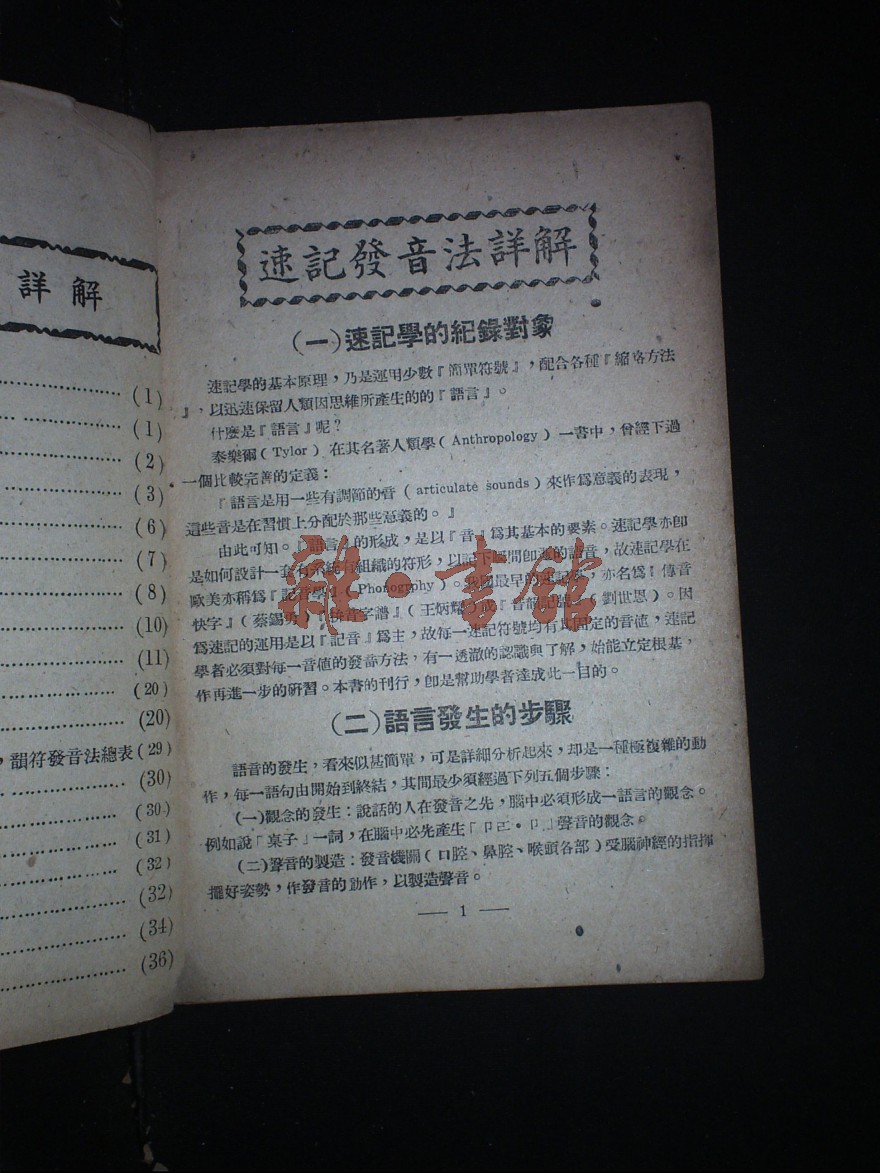 詳解
(1)
(1)
(2)
(3)
(6)
(7)
(8)
(10)
(11)
(20)
(20)
，韻符發音法總表(29)
(30)
(30)
(31)
(32)
(32)
(34)
(36)
速記發音法詳解
(一)速記學的紀錄對象
速記學的基本原理，乃是運用少數『簡單符號』，配合各種『縮略方法
』，以迅速保留人類因思維所產生的的『語言』。
什麼是『語言』呢？
泰樂爾(Tylor)在其名著人類學(Anthropology)一書中，曾經下過
一個比較完善的定義：
『語言是用一些有調節的音(articulate sounds)來作爲意義的表現，
這些音是在習慣上分配於那些意義的。』
由此可知。『語言』的形成，是以『音』爲其基本的要素。速記學亦卽
是如何設計一套有系統有組織的符形，以記下瞬間卽逝的語音，故速記學在
歐美亦稱爲『記音學』(Phonogrphy)。我國最早的速記學，亦名爲『傳音
快字』(蔡錫勇)『快音字譜』(王炳耀)或『音韻記號』(劉世恩)。因
爲速記的運用是以『記音』爲主，故每一速記符號均有其固定的音値，速記
學者必須對每一音値的發音方法，有一透澈的認識與了解，始能立定根基，
作再進一步的硏習。本書的刊行，卽是幫助學者達成此一目的。
(二)語言發生的步驟
語音的發生，看來似甚簡單，可是詳細分析起來，却是一種極複雜的動
作，每一語句由開始到終結，其間最少須經過下列五個步驟：
(一)觀念的發生：說話的人在發音之先，腦中必須形成一語言的觀念。
例如說「桌子」一詞，在腦中必先產生「ㄗㄛ・ㄗ」聲音的觀念。
(二)聲音的製造：發音機關(口腔、鼻腔、喉頭各部)受腦神經的指揮
擺好姿勢，作發音的動作，以製造聲音。
— 1 —
雜·書館